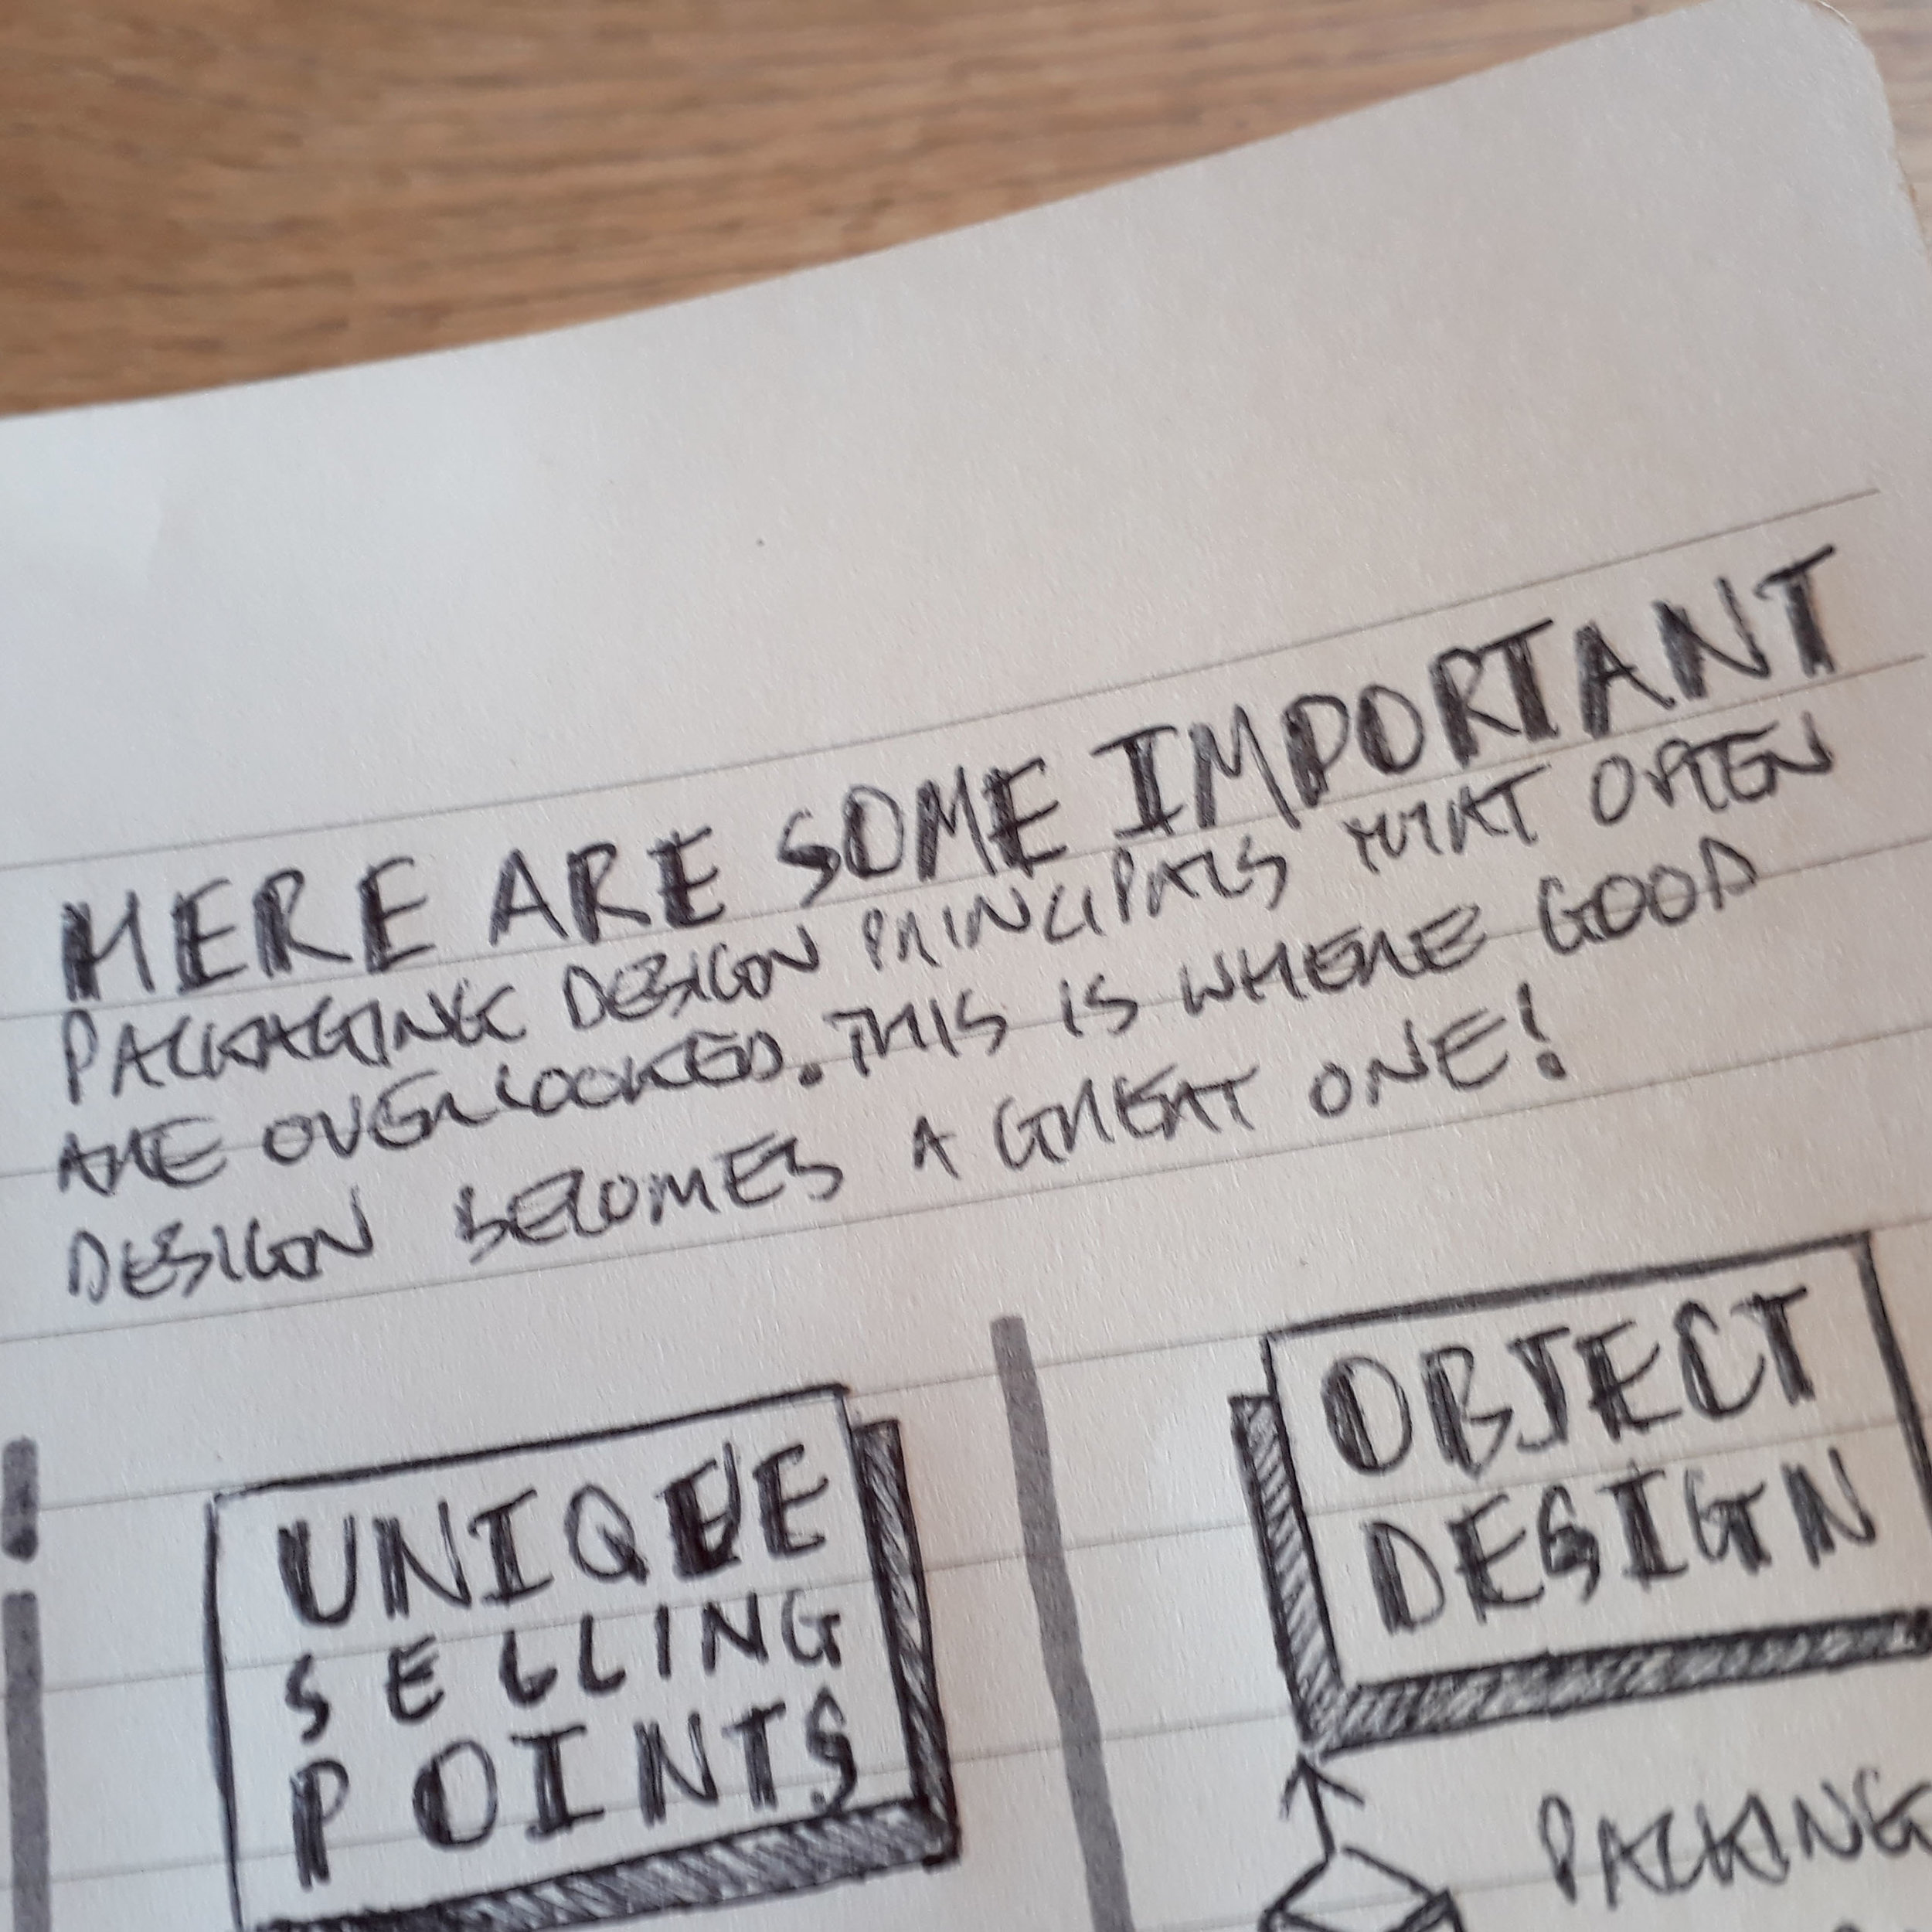 HERE ARE SOME IMPORTANT
PACKAGING DESIGN PRINCIPALS THAT OFTEN
ARE OVERLOOKED. THIS IS WHERE GOOD
DESIGN BECOMES A GREAT ONE!
UNIQUE
SELLING
POINTS
OBJECT
DESIGN
PACKING